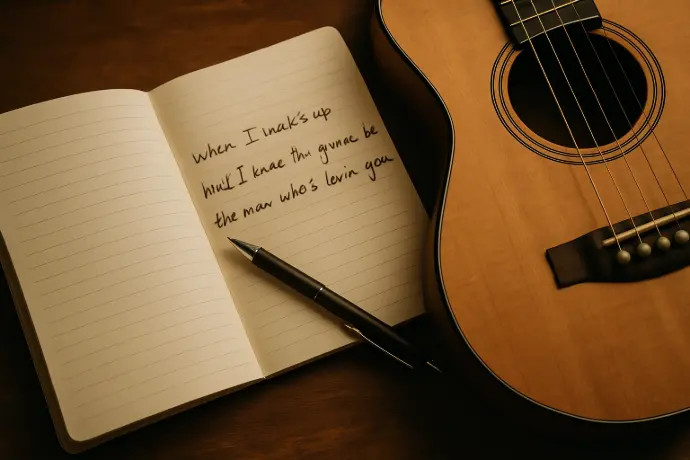 when I inak's up
hiuI I knae thu givnae be
the man who's levin you